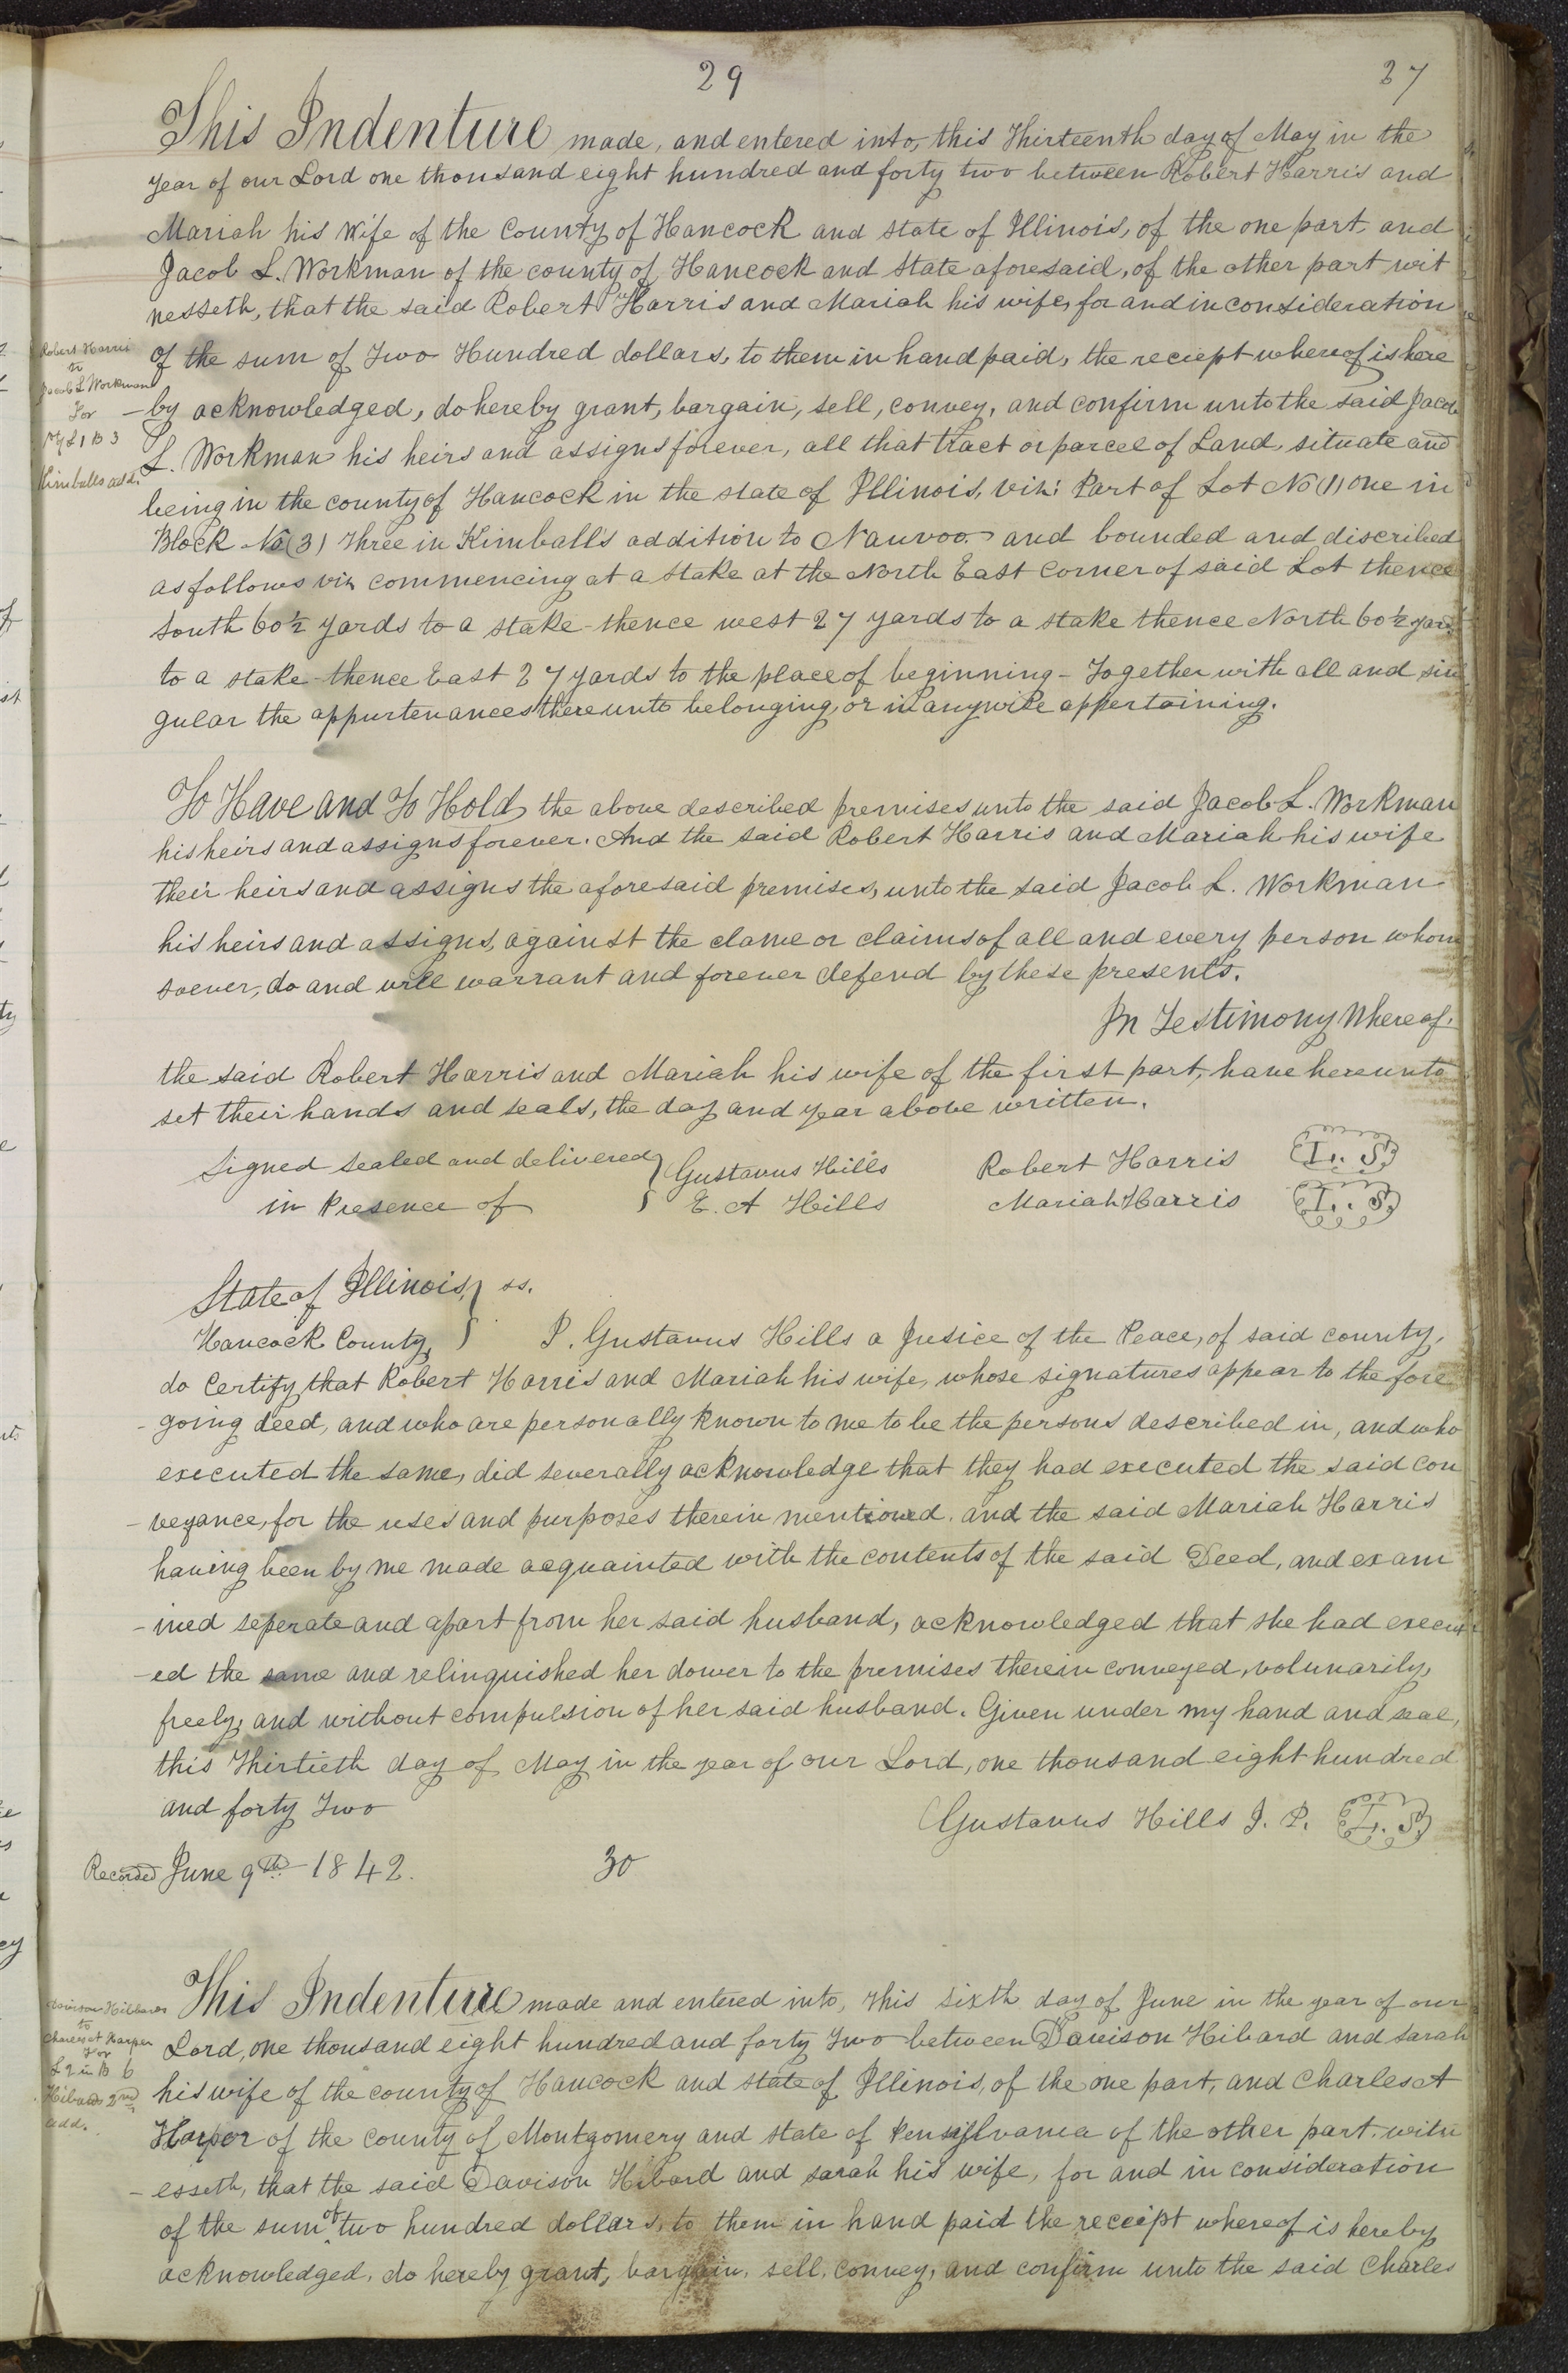 29
27
This Indenture made, and entered into, this Thirteenth day of May in the
year of our Lord one thousand eight hundred and forty two between Robert Harris and
Mariah his Wife of the County of Hancock and state of Illinois, of the one part, and
Jacob L. Workman of the county of Hancock and State aforesaid, of the other part wit
nesseth, that the said Robert Harris and Mariah his wife, for and in consideration
of the sum of Two Hundred dollars, to them in hand paid, the reciept whereof is here
-by acknowledged, do hereby grant, bargain, sell, convey, and confirm unto the said Jacob
L. Workman his heirs and assigns forever, all that tract or parcel of Land, situate and
being in the county of Hancock in the state of Illinois, viz: Part of Lot No (1) one in
Block No (3) Three in Kimball's addition to Nauvoo and bounded and discribed
as follows viz commencing at a Stake at the North East Corner of said Lot thence
South 60½ yards to a stake thence west 27 yards to a stake thence North 60½ yards
to a stake thence East 27 yards to the place of beginning - Together with all and sin
gular the appurtenances thereunto belonging, or in anywise appertaining.
Robert Harris
to
Jacob L Workman
For
Pt L 1 B 3
Kimballs add.
To Have and To Hold, the above described premises unto the said Jacob L. Workman
his heirs and assigns forever. And the said Robert Harris and Mariah his wife
their heirs and assigns the aforesaid premises, unto the said Jacob L. Workman
his heirs and assigns, against the clame or claims of all and every person whom
soever, do and will warrant and forever defend by these presents.
In Testimony Whereof.
the said Robert Harris and Mariah his wife of the first part, have hereunto
set their hands and seals, the day and year above written.
Signed Sealed and delivered } Gustavus Hills Robert Harris L. S.
in Presence of } E. A Hills Mariah Harris L. S.
State of Illinois, } ss.
Hancock County, } I. Gustavus Hills a Jusice of the Peace, of said county,
do Certify, that Robert Harris and Mariah his wife, whose signatures appear to the fore
-going deed, and who are personally known to me to be the persons described in, and who
executed the same, did severally acknowledge that they had executed the said con
-veyance, for the uses and purposes therein mentioned. and the said Mariah Harris
having been by me made acquainted with the contents of the said Deed, and exam
-ined seperate and apart from her said husband, acknowledged that she had execut
-ed the same and relinquished her dower to the premises therein conveyed, volunarily,
freely, and without compulsion of her said husband. Given under my hand and seal,
this Thirtieth day of May in the year of our Lord, one thousand eight hundred
and forty Two
Gustavus Hills J. P. L. S.
Recorded June 9th 1842.
30
This Indenture made and entered into, this sixth day of June in the year of our
Lord, one thousand eight hundred and forty Two between Davison Hibard and Sarah
his wife of the county of Hancock and state of Illinois, of the one part, and Charles A
Harper of the County of Montgomery and state of Pensylvania of the other part. witn
-esseth, that the said Davison Hibard and sarah his wife, for and in consideration
of the sum of two hundred dollars, to them in hand paid the receipt whereof is hereby
acknowledged, do hereby grant, bargain, sell, convey, and confirm unto the said Charles
to
Charles A Harper
For
L 2 in B 6
Hibards 2nd
add.